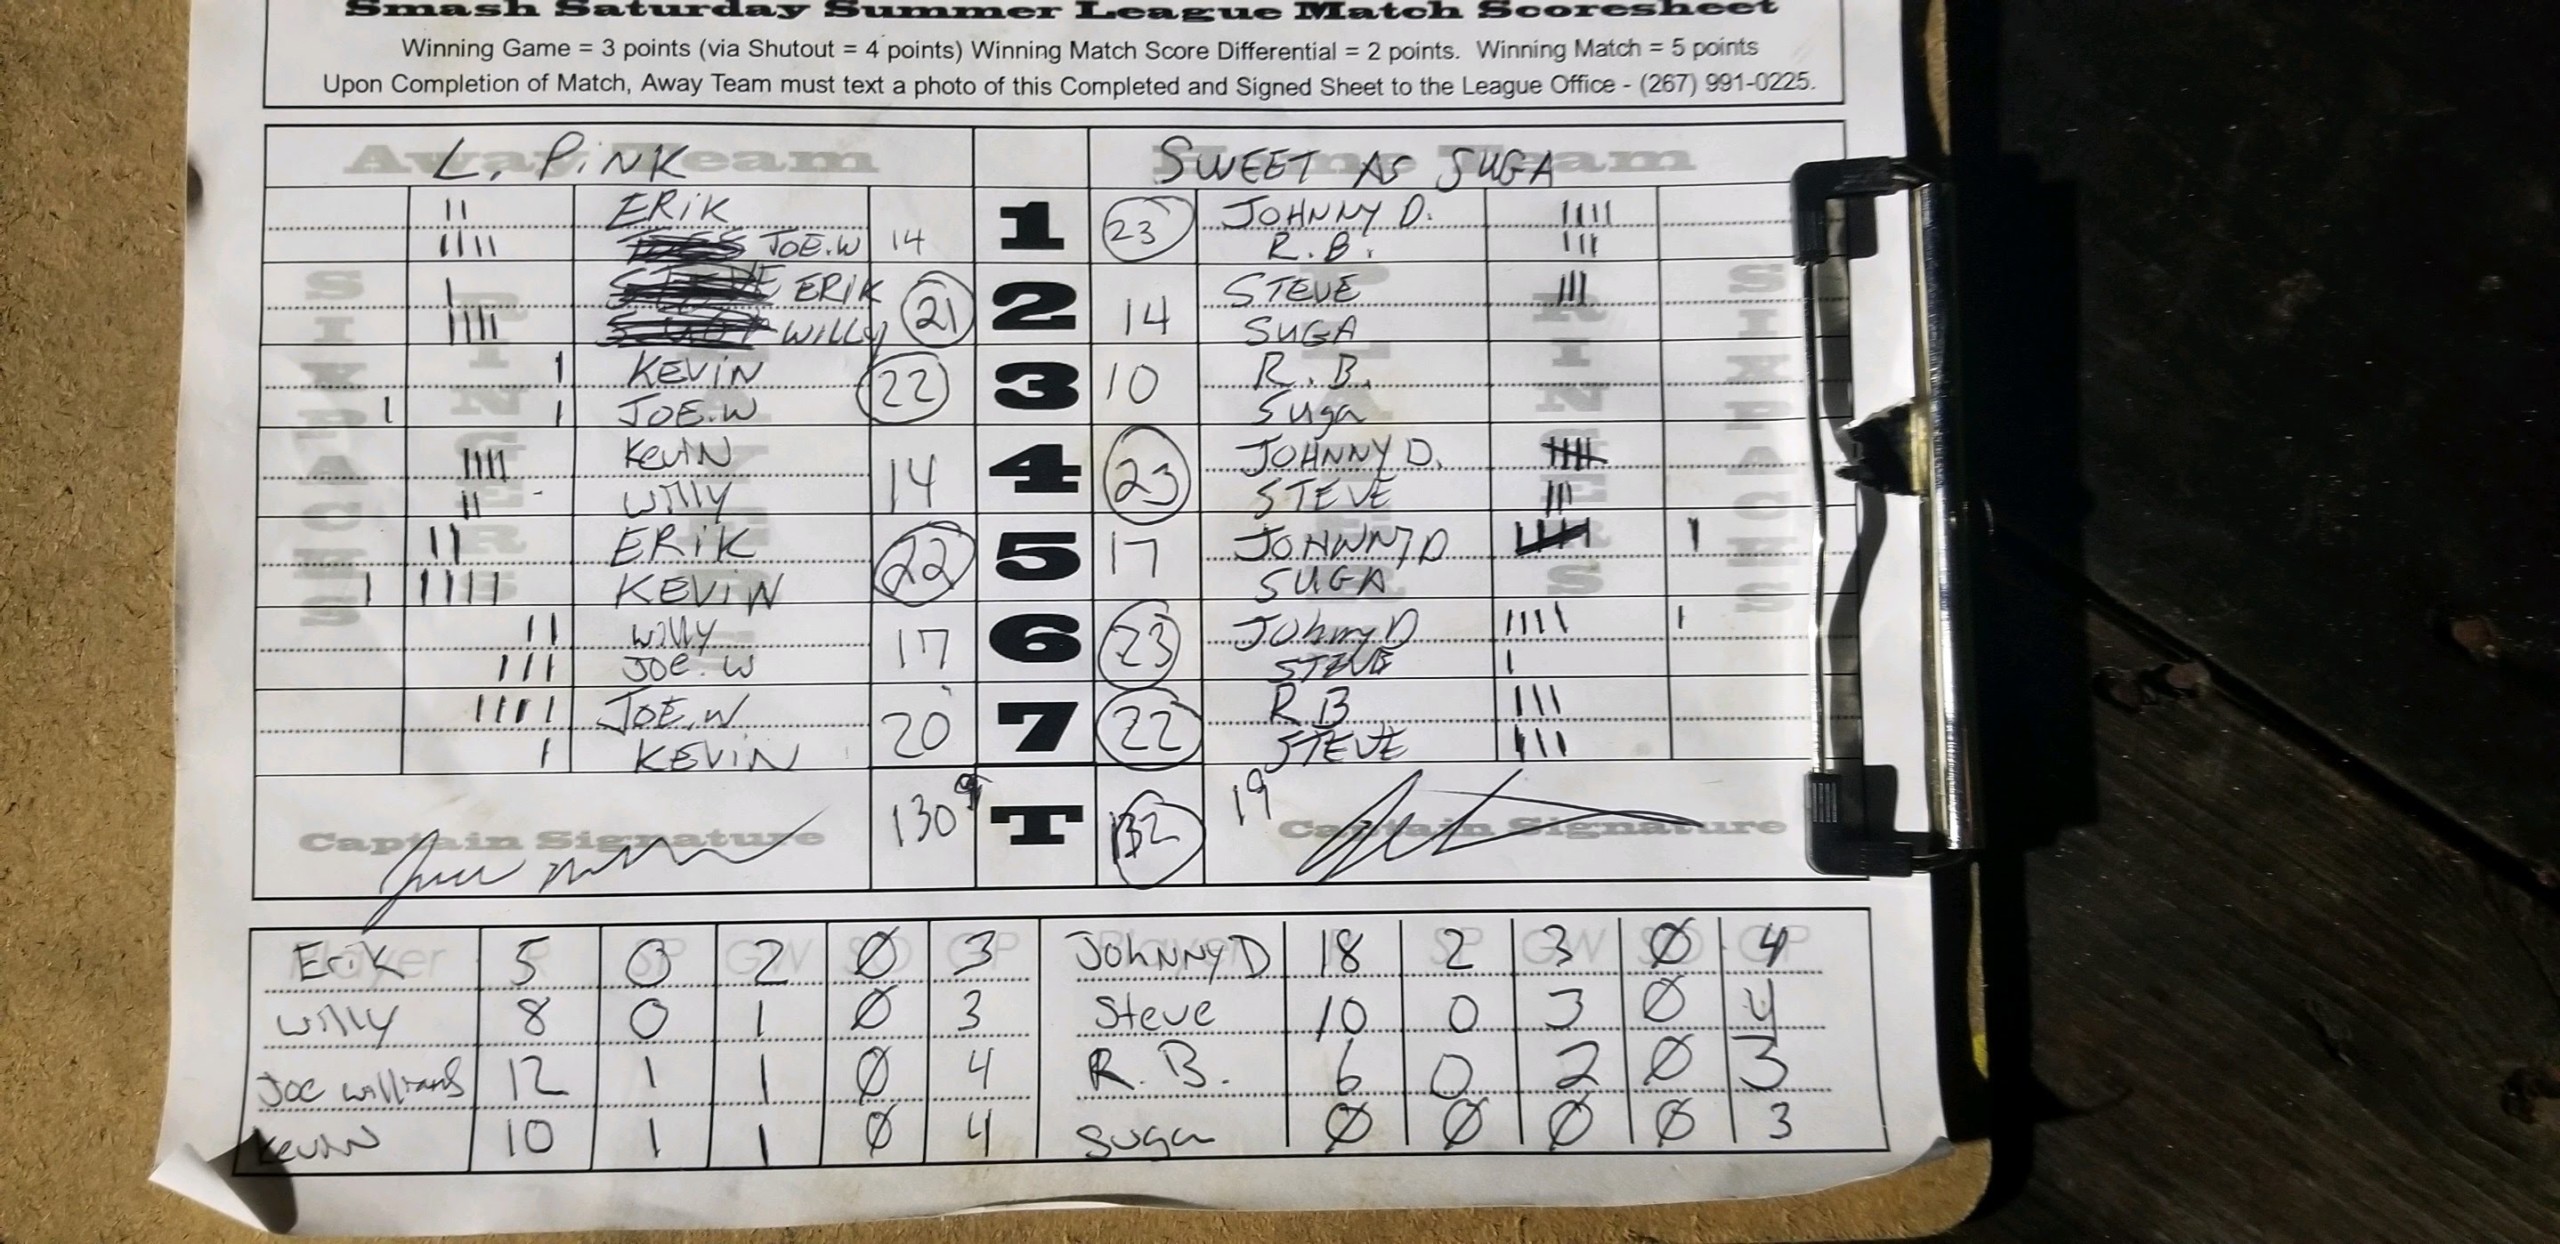 Smash Saturday Summer League Match Scoresheet
Winning Game = 3 points (via Shutout = 4 points) Winning Match Score Differential = 2 points. Winning Match = 5 points
Upon Completion of Match, Away Team must text a photo of this Completed and Signed Sheet to the League Office - (267) 991-0225.
Away Team Home Team
L. PiNK SWEET AS SUGA
SIXPACKS RINGERS PLAYERS PLAYERS RINGERS SIXPACKS
II ERiK 1 JOHNNY D. IIII
IIII JOE.W 14 23 R.B. III
I ERIK 21 2 STEVE III
IIII WILLY 14 SUGA
I KEViN 22 3 10 R.B.
I I JOE.W Suga
IIII KeviN 14 4 23 JOHNNY D. IIII
II Willy STEVE III
II ERiK 22 5 17 JOHNNY D IIII I
I IIII KEViN SUGA
II Willy 17 6 23 JOhnny D IIII I
III JOE.W STEVE I
IIII JOE.W 20 7 22 R B III
I KEViN STEVE III
130 9 T 132 19
Captain Signature Captain Signature
Player R SP GW SO GP Player R SP GW SO GP
Erik 5 0 2 Ø 3 JOhNNY D 18 2 3 Ø 4
Willy 8 0 1 Ø 3 Steve 10 0 3 Ø 4
Joe Williams 12 1 1 Ø 4 R.B. 6 0 2 Ø 3
KeviN 10 1 1 Ø 4 Suga Ø Ø Ø Ø 3